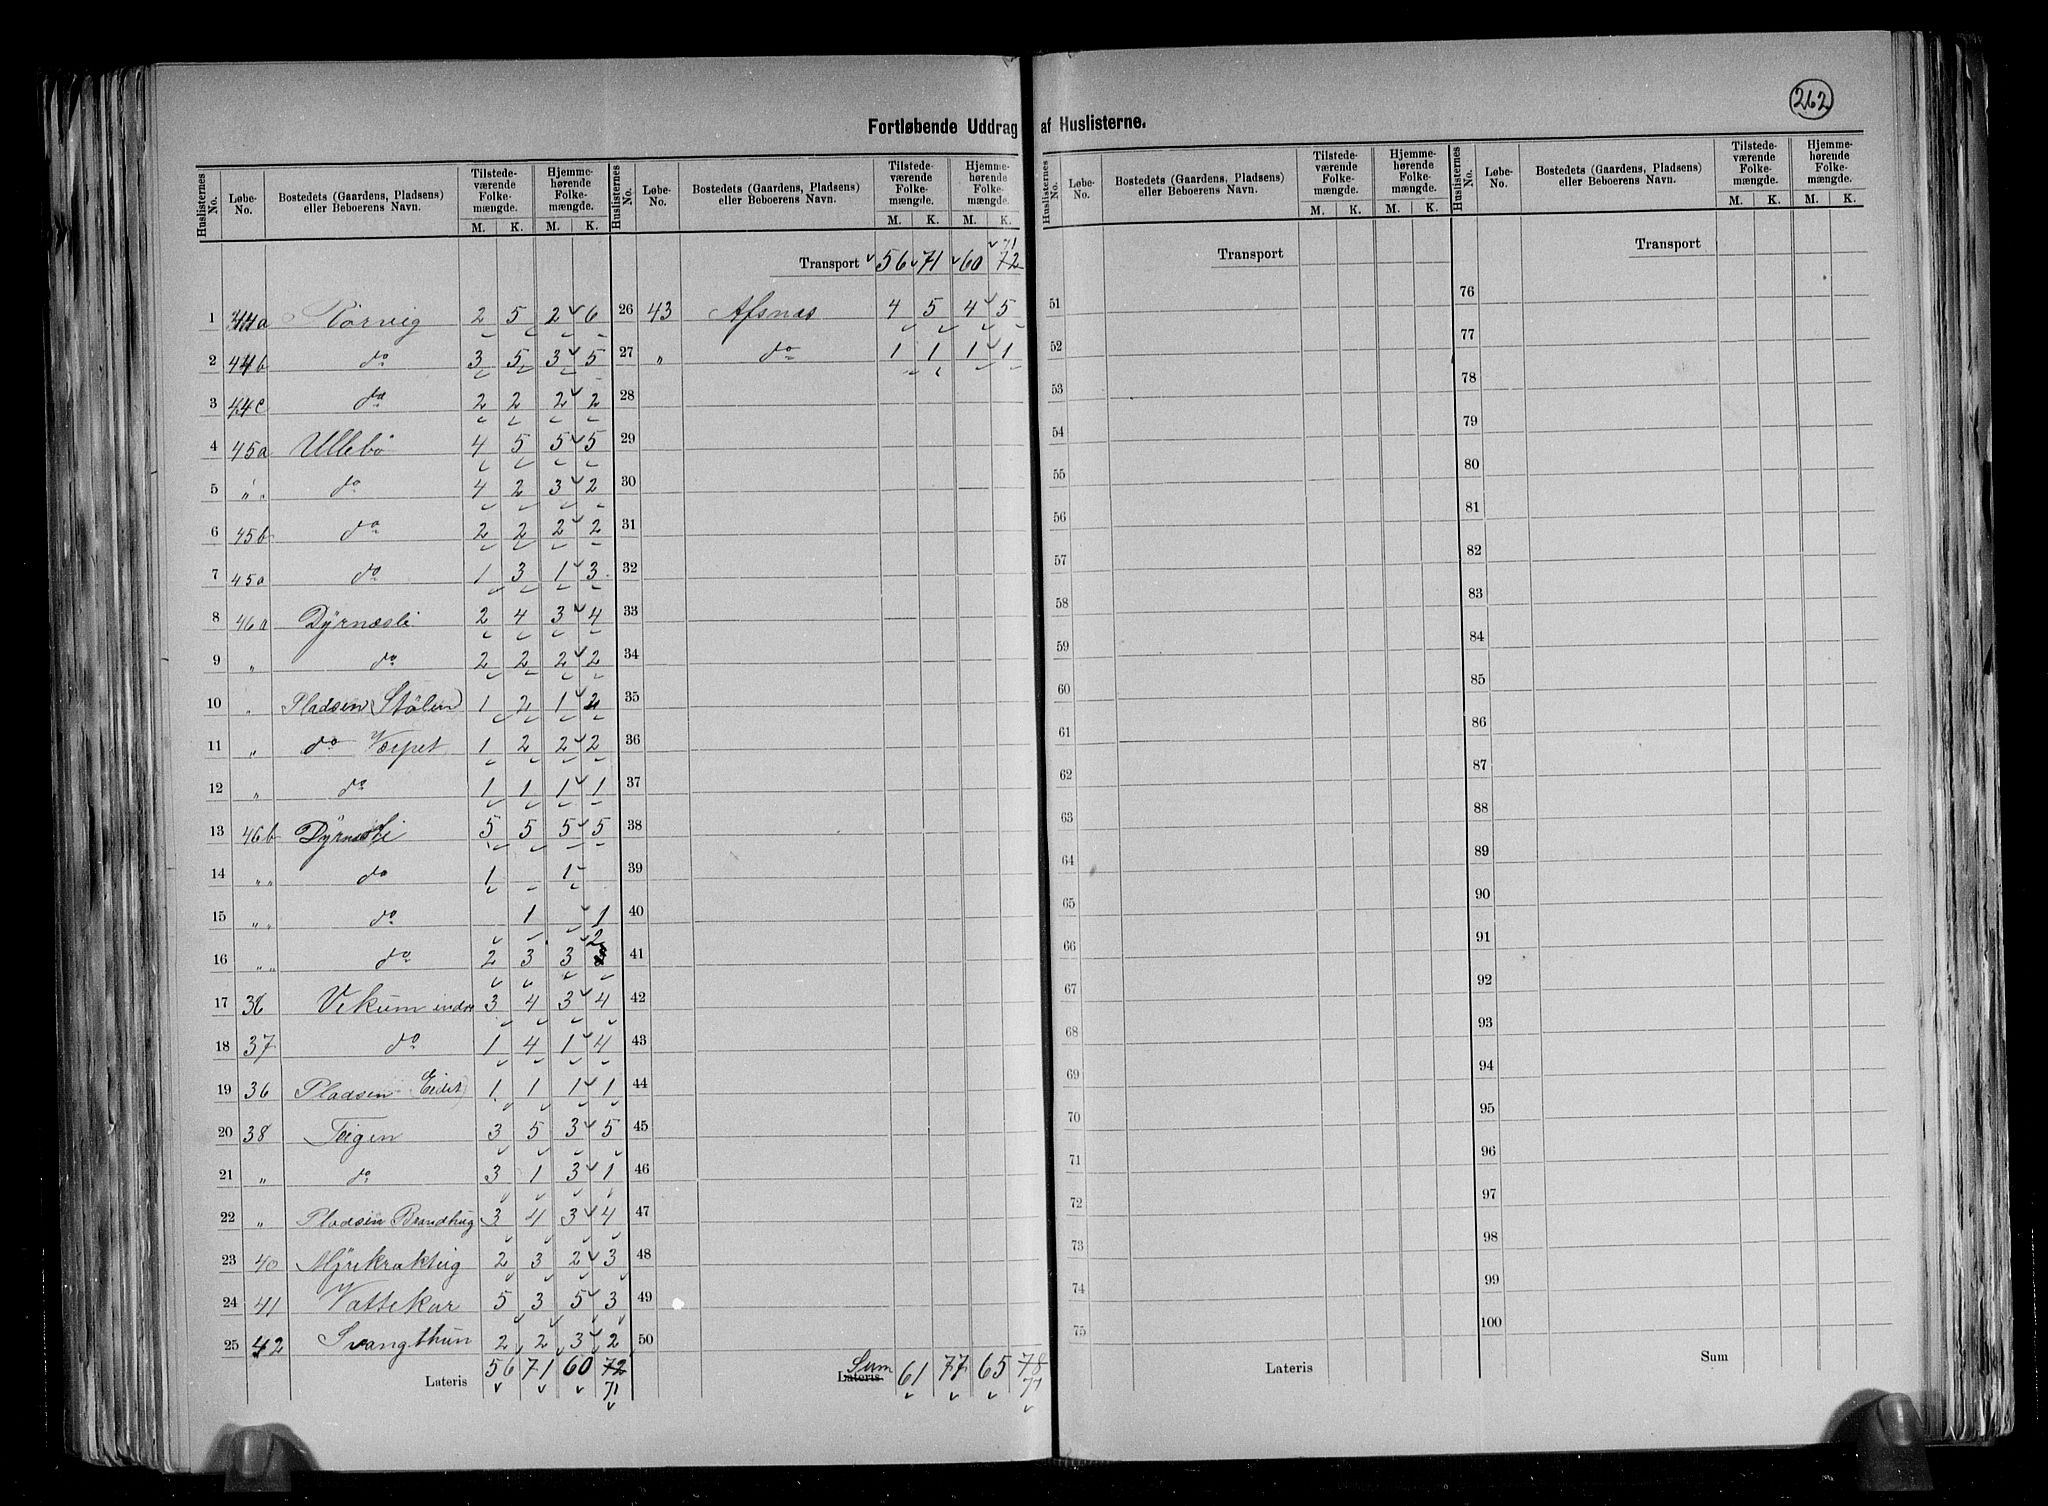 262
Fortløbende Uddrag af Huslisterne.
Huslisternes No. Løbe-No. Bostedets (Gaardens, Pladsens) eller Beboerens Navn. Tilstedeværende Folkemængde. M. K. Hjemmehørende Folkemængde. M. K.
Huslisternes No. Løbe-No. Bostedets (Gaardens, Pladsens) eller Beboerens Navn. Tilstedeværende Folkemængde. M. K. Hjemmehørende Folkemængde. M. K.
1 44a Torvig 2 5 2 6
2 44b do 3 5 3 5
3 44c do 2 2 2 2
4 45a Ullebö 4 5 5 5
5 " " do 4 2 3 2
6 45b do 2 2 2 2
7 45a do 1 3 1 3
8 46a Dyrnæsli 2 4 3 4
9 " do 2 2 2 2
10 " Pladsen (Stölen) 1 2 1 2
11 " do Værpet 1 2 2 2
12 " do 1 1 1 1
13 46b Dyrnæsli 5 5 5 5
14 " " do 1 - 1
15 " " do 1 1
16 " " do 2 3 3 3 2
17 36 Vikum indre 3 4 3 4
18 37 do 1 4 1 4
19 36 Pladsen Eidet) 1 1 1 1
20 38 Teigen 3 5 3 5
21 " do 3 1 3 1
22 " Pladsen Brandhug 3 4 3 4
23 40 2 3 2 3
24 41 Vattekar 5 3 5 3
25 42 Svangthun 2 2 3 2
Lateris 56 71 60 72
71
Transport 56 71 60 72 71
26 43 Afsnæs 4 5 4 5
27 " do 1 1 1 1
28
29
30
31
32
33
34
35
36
37
38
39
40
41
42
43
44
45
46
47
48
49
50
Lateris Sum 61 77 65 78
77
Huslisternes No. Løbe-No. Bostedets (Gaardens, Pladsens) eller Beboerens Navn. Tilstedeværende Folkemængde. M. K. Hjemmehørende Folkemængde. M. K.
Transport
51
52
53
54
55
56
57
58
59
60
61
62
63
64
65
66
67
68
69
70
71
72
73
74
75
Lateris
Huslisternes No. Løbe-No. Bostedets (Gaardens, Pladsens) eller Beboerens Navn. Tilstedeværende Folkemængde. M. K. Hjemmehørende Folkemængde. M. K.
Transport
76
77
78
79
80
81
82
83
84
85
86
87
88
89
90
91
92
93
94
95
96
97
98
99
100
Sum